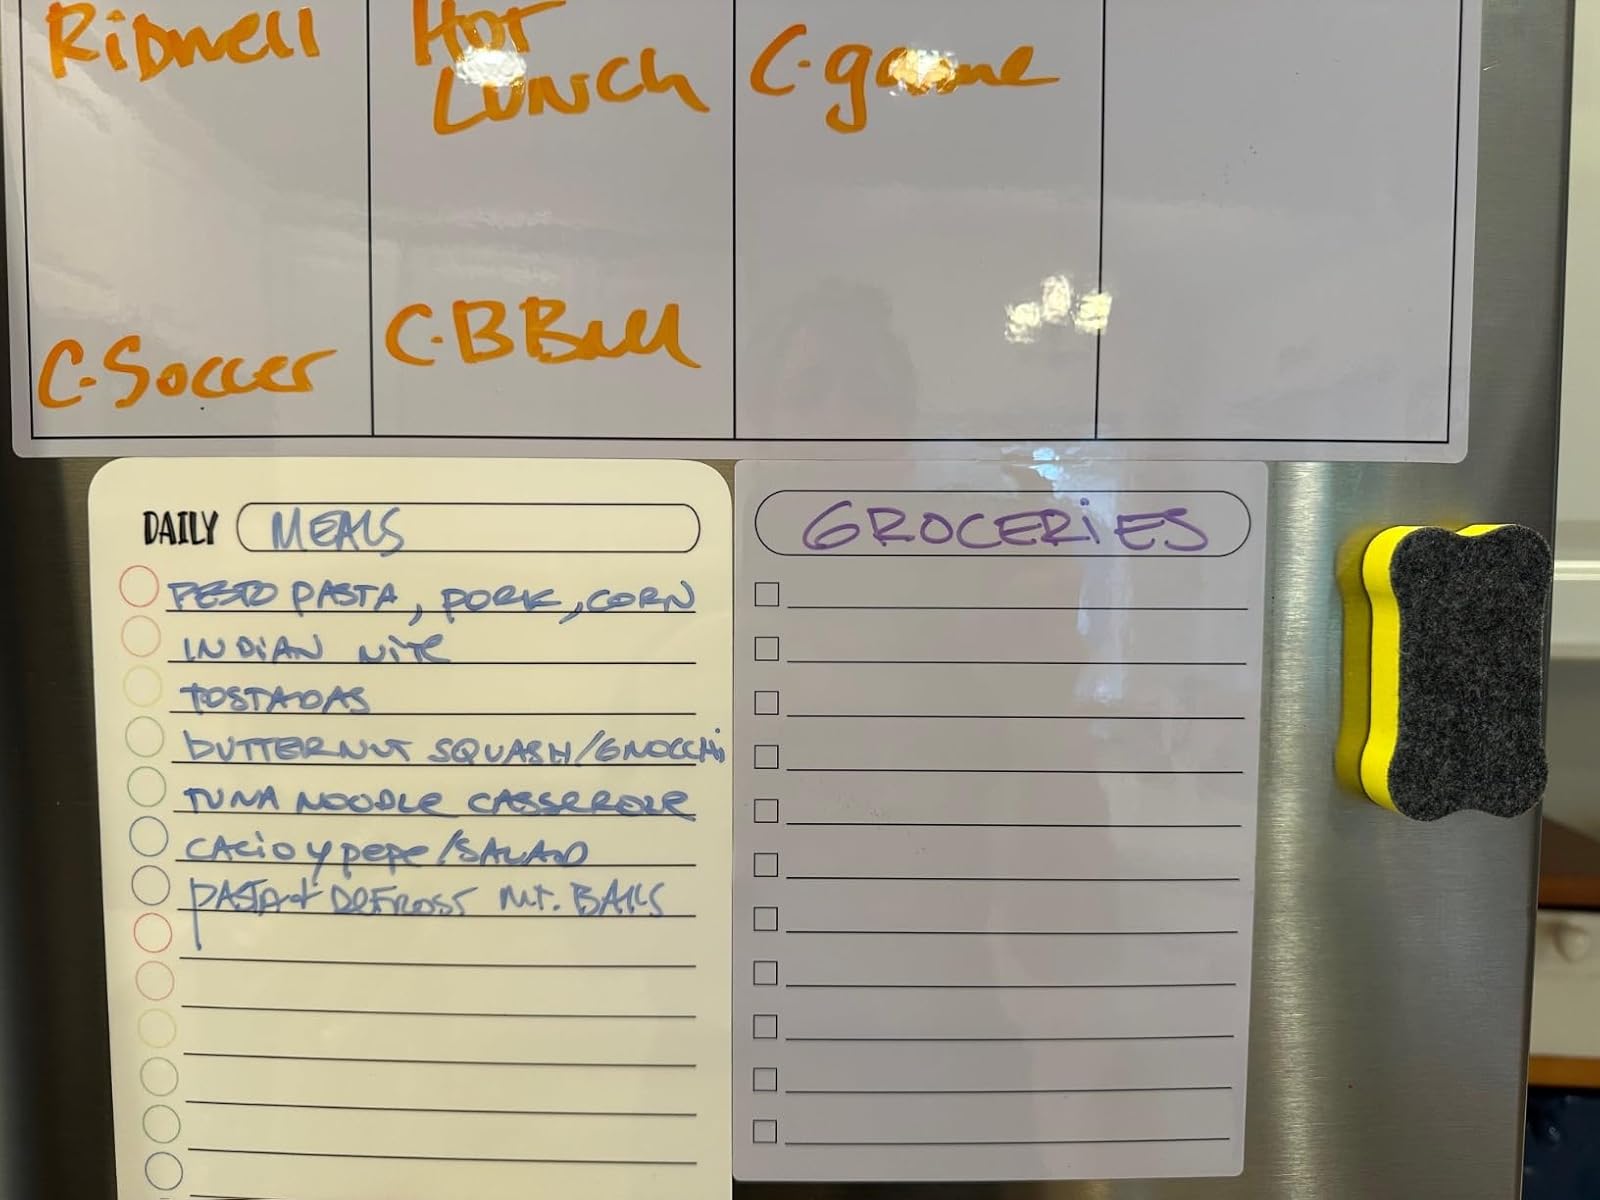 Ridwell
Hot
Lunch
C-game
C-Soccer
C-BBall
DAILY MEALS
PESTO PASTA, PORK, CORN
INDIAN NITE
TOSTADAS
BUTTERNUT SQUASH/GNOCCHi
TUNA NOODLE CASSEROLE
CACiO y pepe/SALAD
PASTA + DEFROST MT. BALLS
GROCERiES